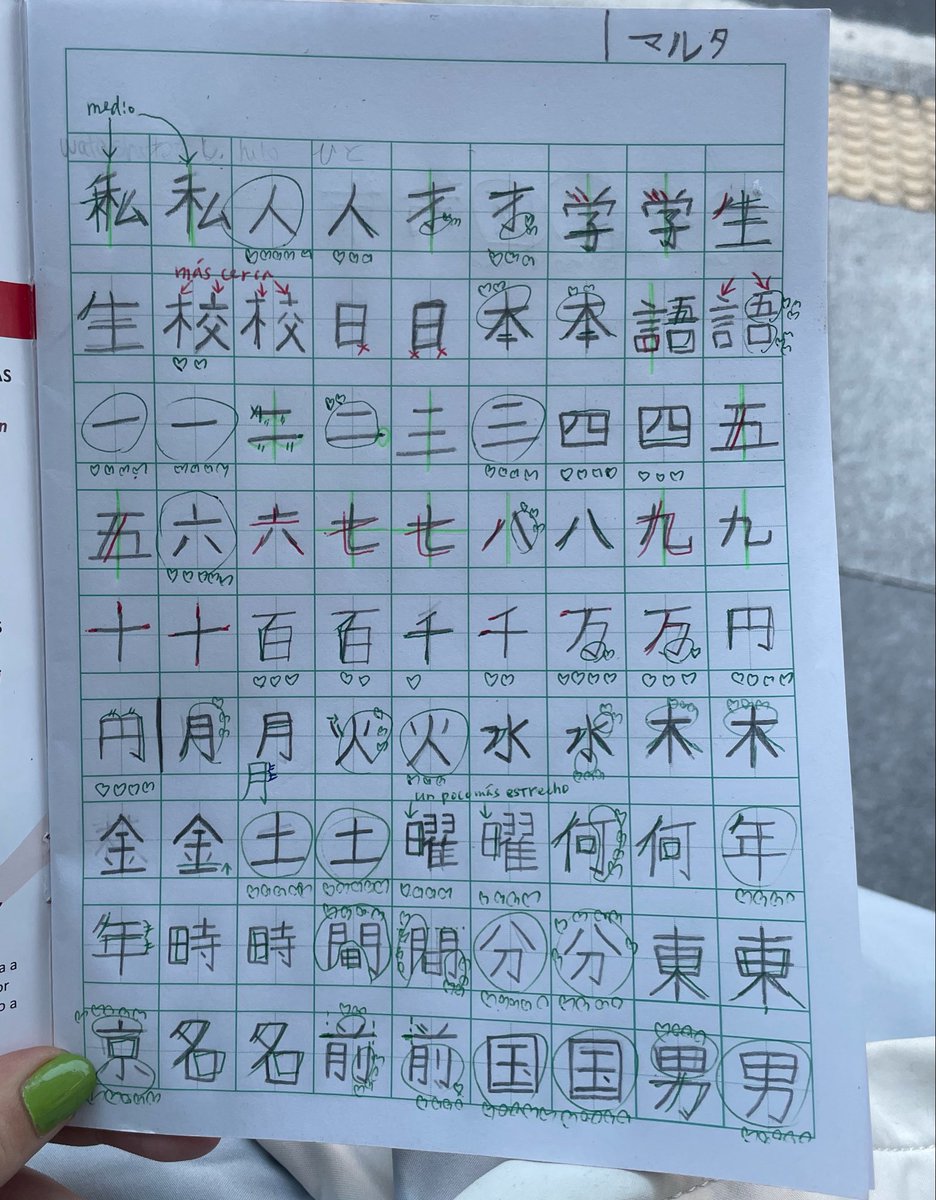 マルタ
medio
私私人人才才学学生
más cerca
生校校日日本本語語
一一二二三三四四五
五六六七七八八九九
十十百百千千万万円
円月月火火水水木木
月
un poco más estrecho
金金土土曜曜何何年
年時時間間分分東東
京名名前前国国男男